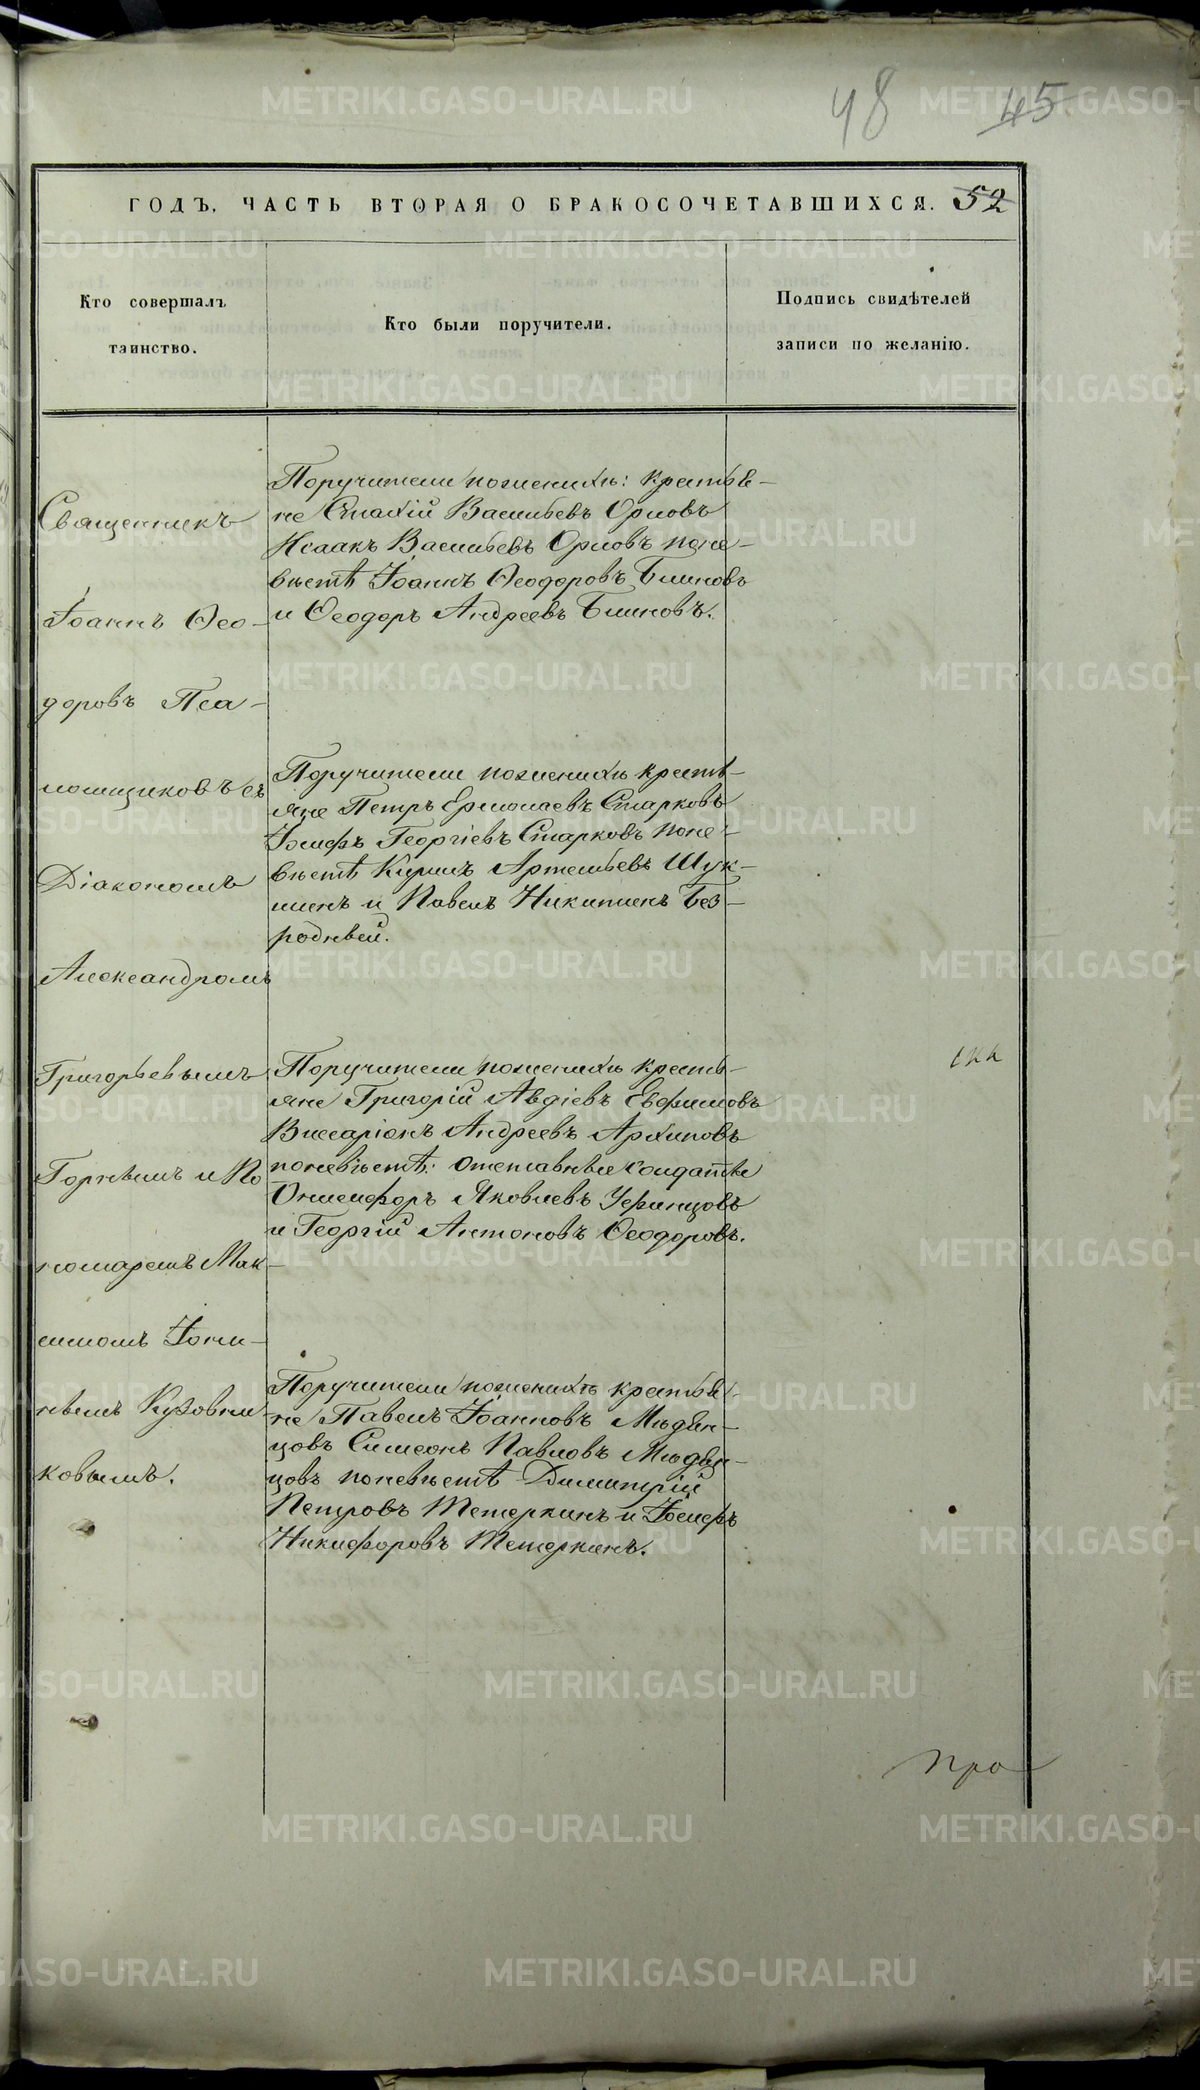 48 45
ГОДЪ, ЧАСТЬ ВТОРАЯ О БРАКОСОЧЕТАВШИХСЯ. 52
Кто совершалъ
таинство.
Кто были поручители.
Подпись свидѣтелей
записи по желанію.
Священникъ
Іоаннъ Ѳео-
доровъ Пса-
ломщиковъ съ
Діакономъ
Александромъ
Григорьевымъ
Горнымъ и По
номаремъ Мак-
симомъ Іони-
нымъ Кузовни
ковымъ.
Поручители по женихѣ: крестья-
не Васильевъ Орловъ
Исаакъ Васильевъ Орловъ по не-
вѣстѣ Іоаннъ Ѳеодоровъ Блиновъ
и Ѳеодоръ Андреевъ Блиновъ.
Поручители по женихѣ крестъ-
яне Петръ Ермолаевъ Старковъ
Іосифъ Георгіевъ Старковъ по не-
вѣстѣ Кирилъ Артемьевъ Шук-
шинъ и Павелъ Никитинъ Без-
родный.
Поручители по женихѣ кресть-
яне Григорій Авдіевъ Евфимовъ
Виссаріонъ Андреевъ Архиповъ
по невѣстѣ: отставные солдаты
Онисифоръ Яковлевъ Уфинцовъ
и Георгій Антоновъ Ѳеодоровъ.
Поручители по женихѣ крестья-
не Павелъ Іоанновъ Мѣдян-
цовъ Симеонъ Павловъ Мѣдян-
цовъ по невѣстѣ Димитрій
Петровъ Тетеркинъ и Іосифъ
Никифоровъ Тетеркинъ.